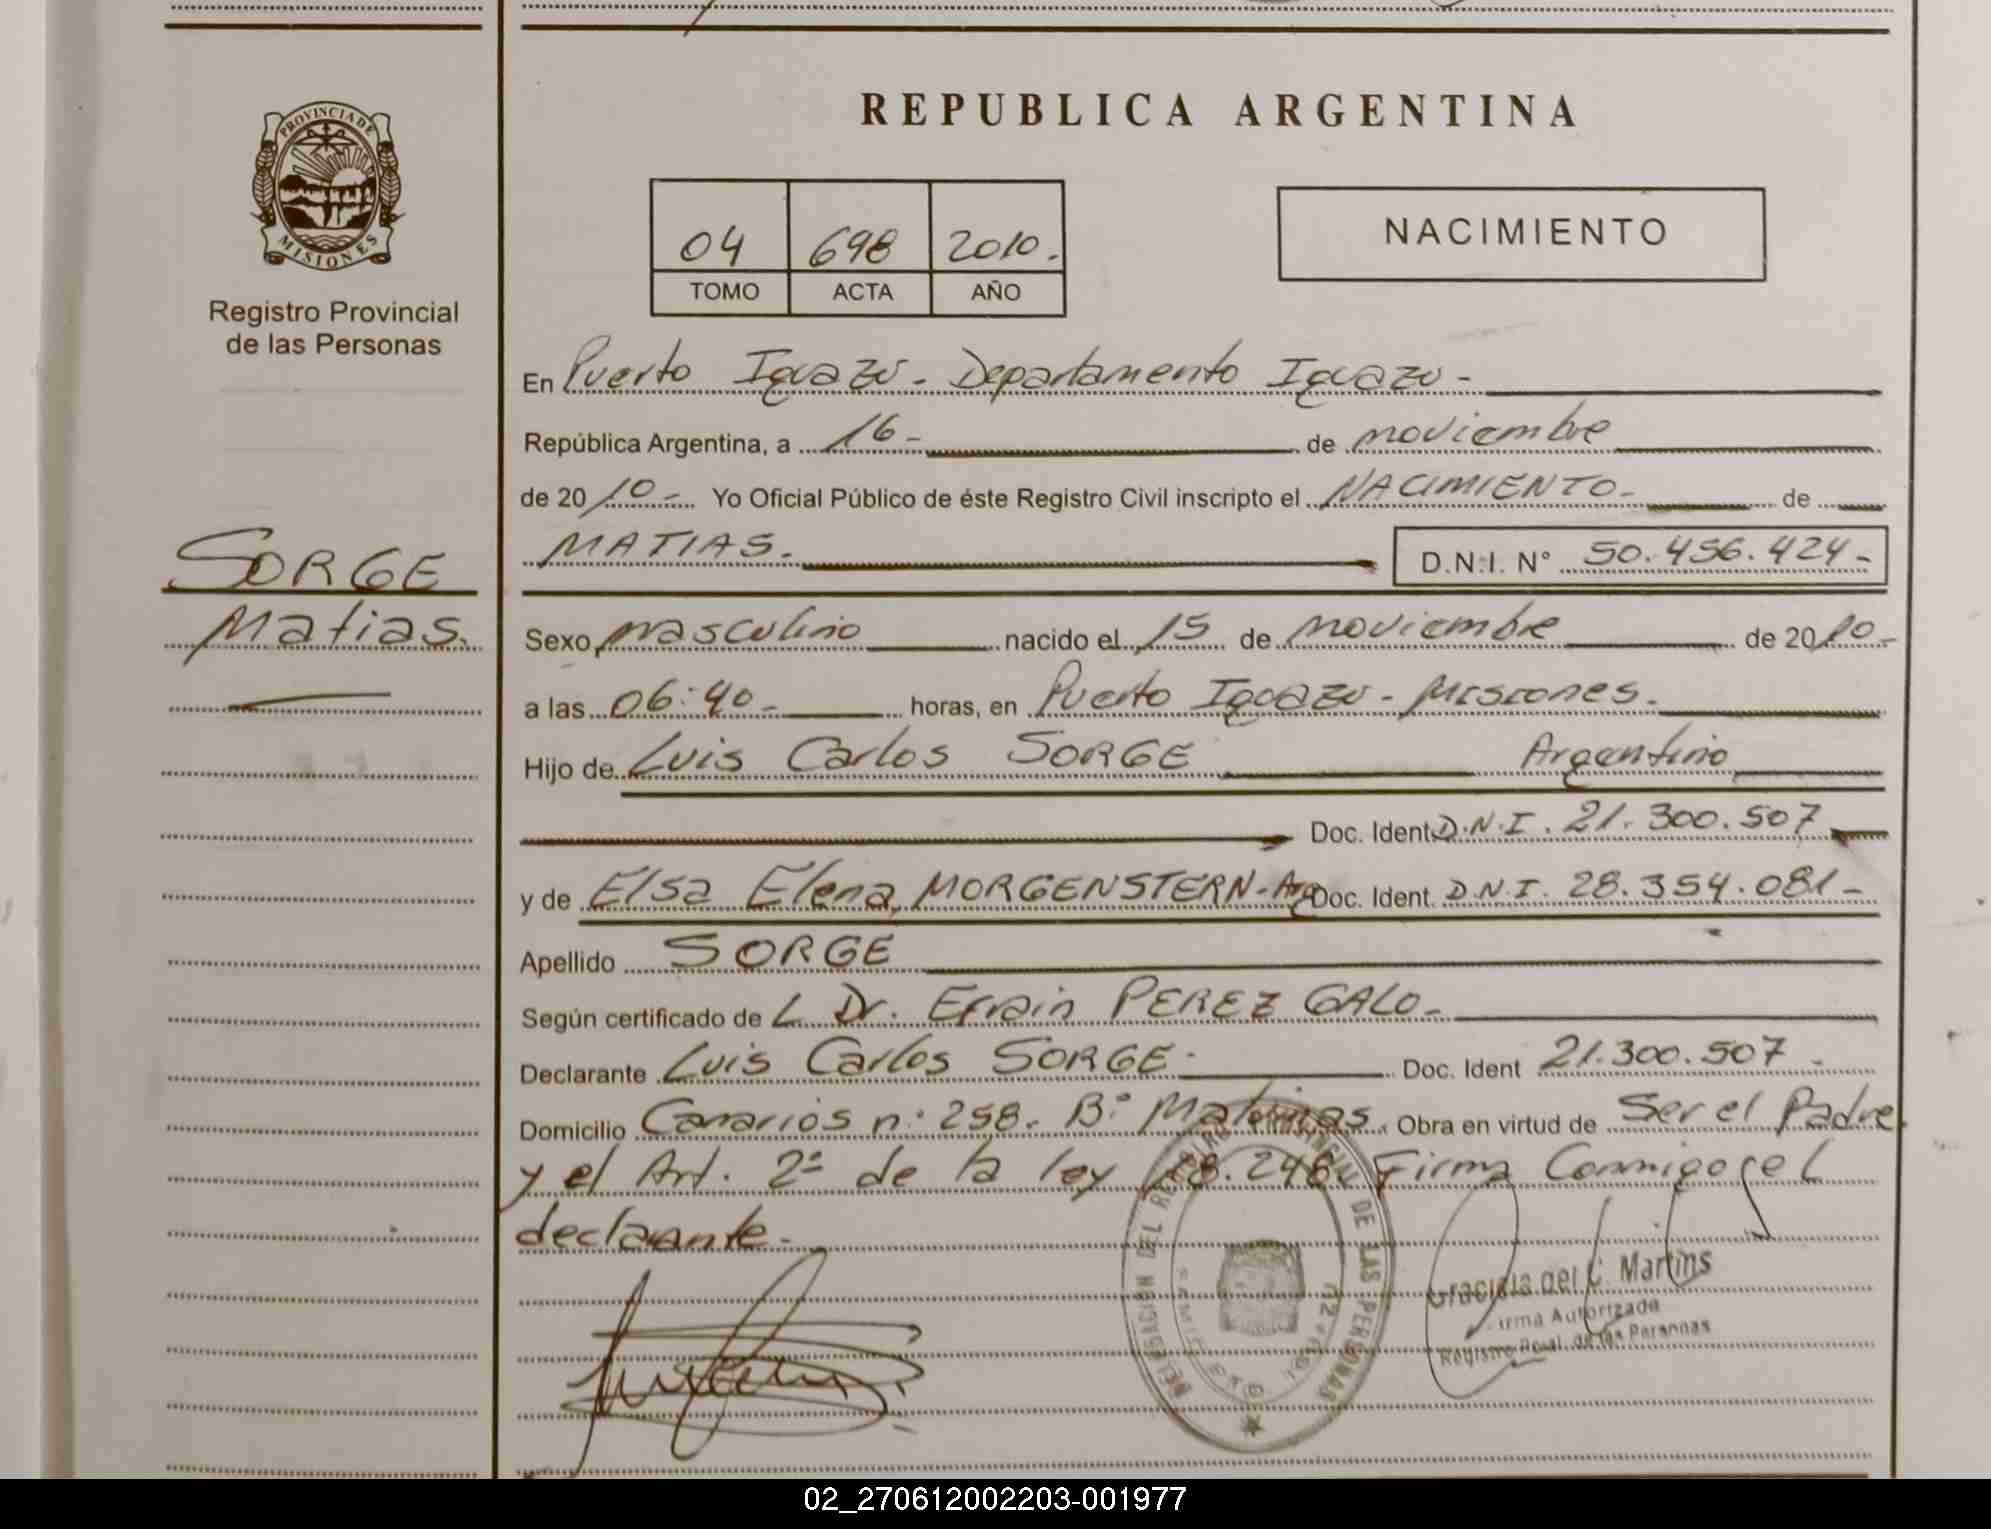 REPUBLICA ARGENTINA
PROVINCIA DE
MISIONES
Registro Provincial
de las Personas
04 698 2010.
TOMO ACTA AÑO
NACIMIENTO
En Puerto Iguazú - Departamento Iguazú -
República Argentina, a 16 - de noviembre
de 2010 - Yo Oficial Público de éste Registro Civil inscripto el NACIMIENTO - de
MATIAS. D.N.I. N° 50.456.424 -
SORGE
Matias.
Sexo masculino nacido el 15 de noviembre de 2010 -
a las 06:40 - horas, en Puerto Iguazú - Misiones.
Hijo de Luis Carlos SORGE Argentino
Doc. Ident D.N.I. 21.300.507
y de Elsa Elena MORGENSTERN - Arg Doc. Ident. D.N.I. 28.354.081 -
Apellido SORGE
Según certificado de L Dr. Efrain PEREZ GALO -
Declarante Luis Carlos SORGE - Doc. Ident 21.300.507
Domicilio Canarios n° 258. B° Malvinas. Obra en virtud de Ser el Padre
y el Art. 2° de la ley 18.248 Firma Conmigo el
declarante.
DELEGACION DEL REGISTRO PROVINCIAL DE LAS PERSONAS
Graciela del C. Martins
Firma Autorizada
Registro Pcial. de las Personas
02_270612002203-001977